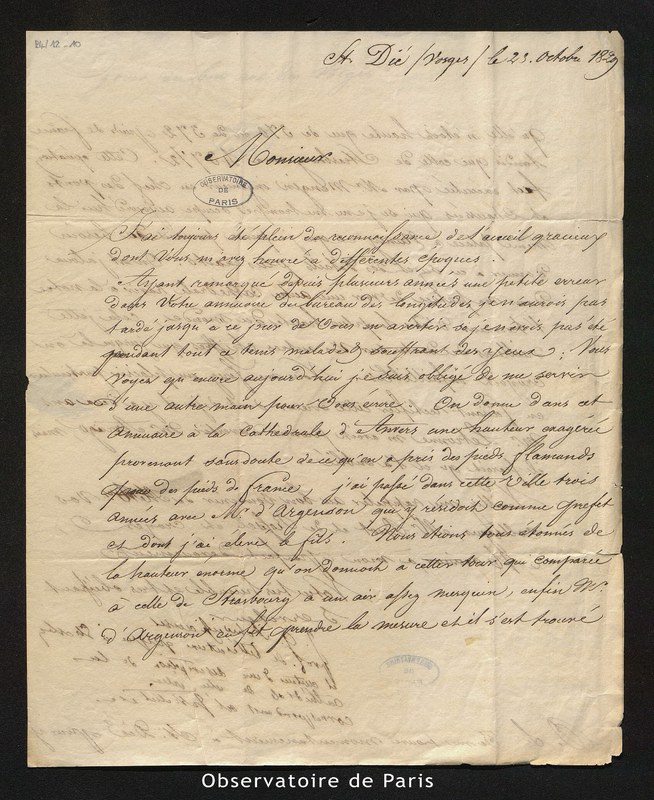 St. Dié / Vosges / le 23. Octobre 1829
Monsieur
OBSERVATOIRE
DE
PARIS
J'ai toujours été plein de reconnoissance de l'accueil gracieux
dont Vous m'avez honoré à différentes époques.
Ayant remarqué depuis plusieurs années une petite erreur
dans Votre annuaire du bureau des longitudes j'en aurois pas
tardé jusqu'a ce jour de Vous en avertir si je n'avois pas été
pendant tout ce tems malade & souffrant des yeux; Vous
Voyez qu'encore aujourd'hui je suis obligé de me servir
d'une autre main pour Vous ecrire. On donne dans cet
annuaire à la Cathédrale d'Anvers une hauteur exagérée
provenant sans doute de ce qu'on a pris des pieds flamands
pour des pieds de france, j'ai passé dans cette Ville trois
années avec Mr. d'Argenson qui y résidoit comme prefet
et dont j'ai élevé le fils. Nous étions tous étonnés de
la hauteur enorme qu'on donnoit à cette tour qui comparée
a celle de Strasbourg à un air assez mesquin, enfin Mr.
d'Argenson en fit prendre la mesure et il s'est trouvé
Observatoire de Paris